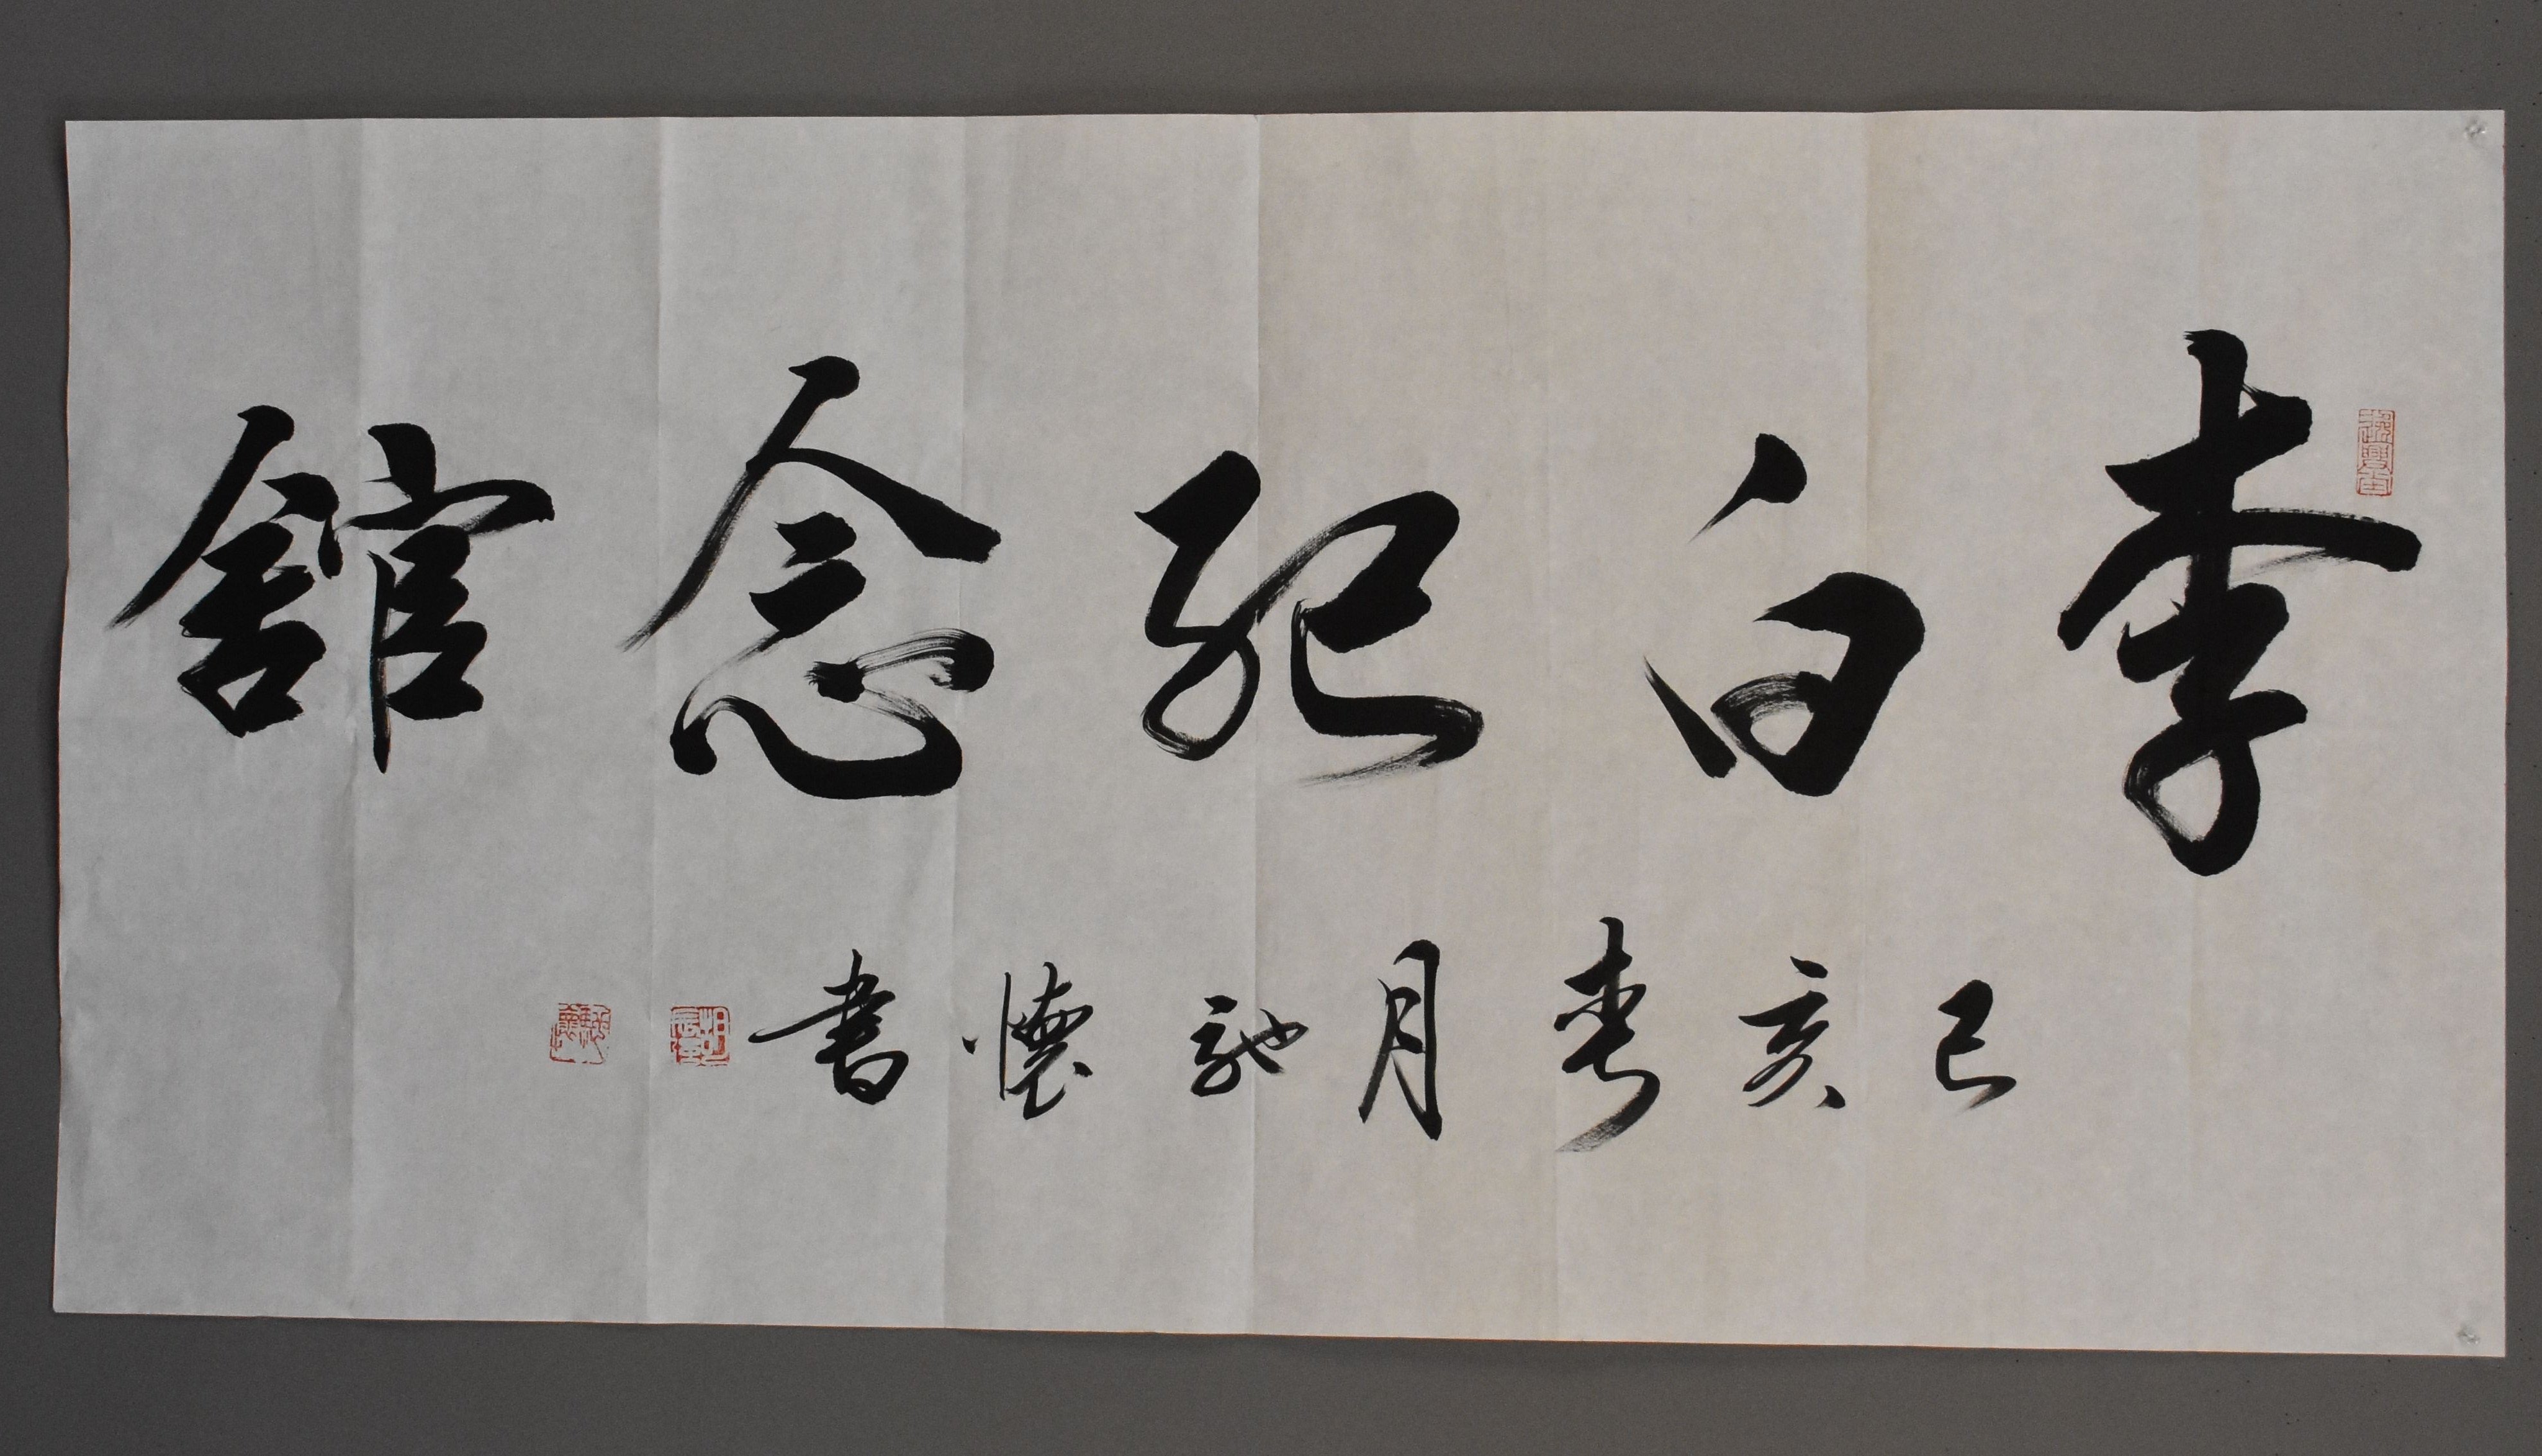 李白紀念館
己亥春月馳懷書